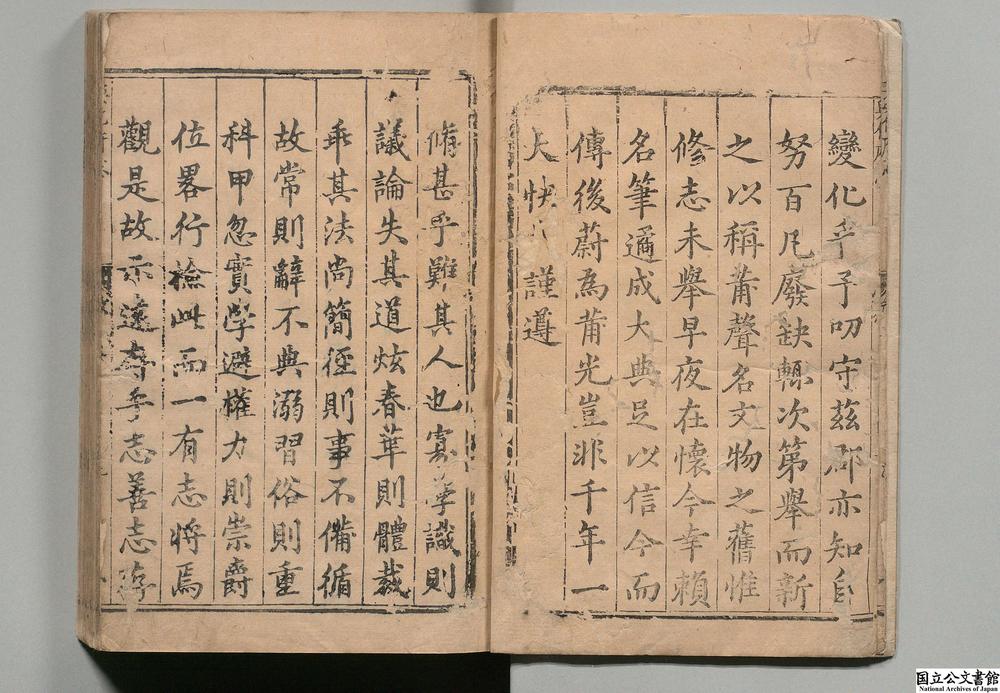 變化乎予叨守茲郡亦知自
努百凡廢缺輒次第舉而新
之以稱莆聲名文物之舊惟
修志未舉早夜在懷今幸賴
名筆遹成大典足以信今而
傳後蔚為莆光豈非千年一
大快 謹遵
脩甚乎難其人也寡學識則
議論失其道炫春華則體裁
乖其法尚簡徑則事不備循
故常則辭不典溺習俗則重
科甲忽實學避權力則崇爵
位畧行檢此而一有志將焉
觀是故示遠存乎志善志存
国立公文書館
National Archives of Japan